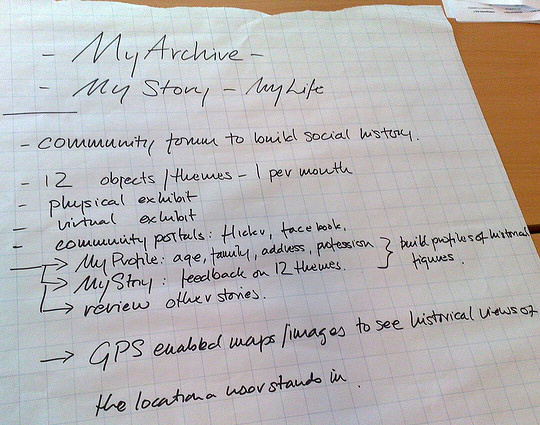 - My Archive -
- My Story - My Life
- community forum to build social history.
- 12 objects/themes - 1 per month
- physical exhibit
- virtual exhibit
- community portals: flickr, facebook.
→ My Profile: age, family, address, profession } build profiles of historical
→ My Story: feedback on 12 themes. figures.
→ review other stories.
→ GPS enabled maps/images to see historical views of
the location a user stands in.